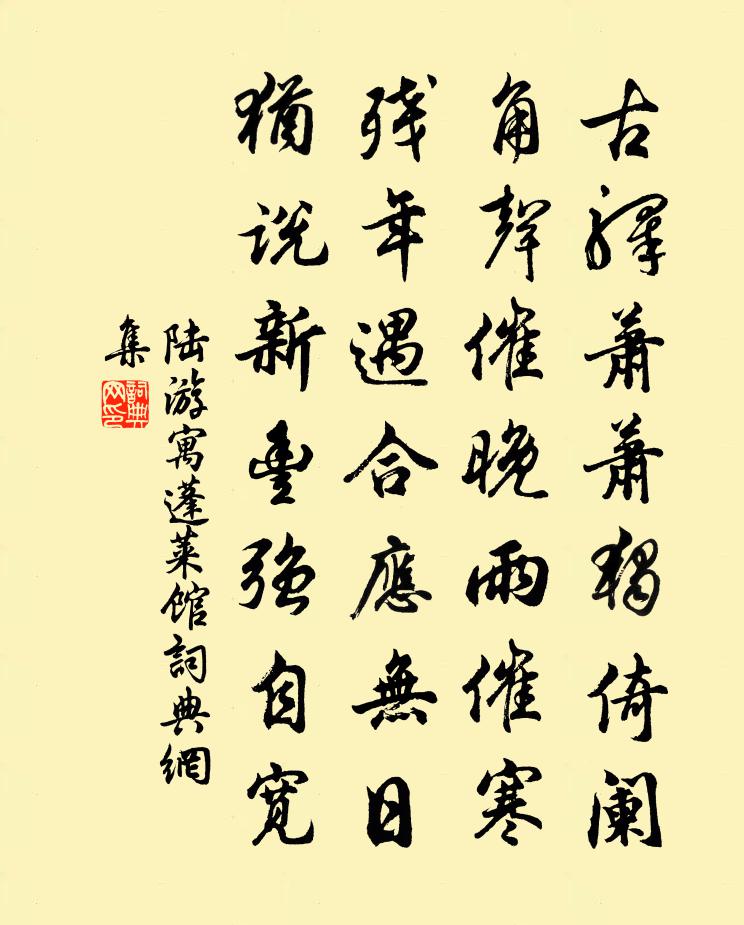 古驛蕭蕭獨倚闌
角聲催晚雨催寒
殘年遇合應無日
猶說新豐強自寬
陸游寓蓬萊館詞典網
集
詞典网印